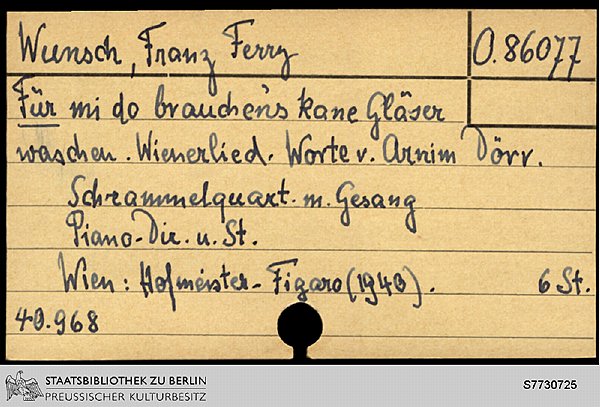 Wunsch, Franz Ferry
O. 86077
Für mi do brauchen's kane Gläser
waschen. Wienerlied. Worte v. Arnim Dörr.
Schrammelquart. m. Gesang
Piano-Dir. u. St.
Wien: Hofmeister-Figaro (1940). 6 St.
40.968
STAATSBIBLIOTHEK ZU BERLIN
PREUSSISCHER KULTURBESITZ
S7730725